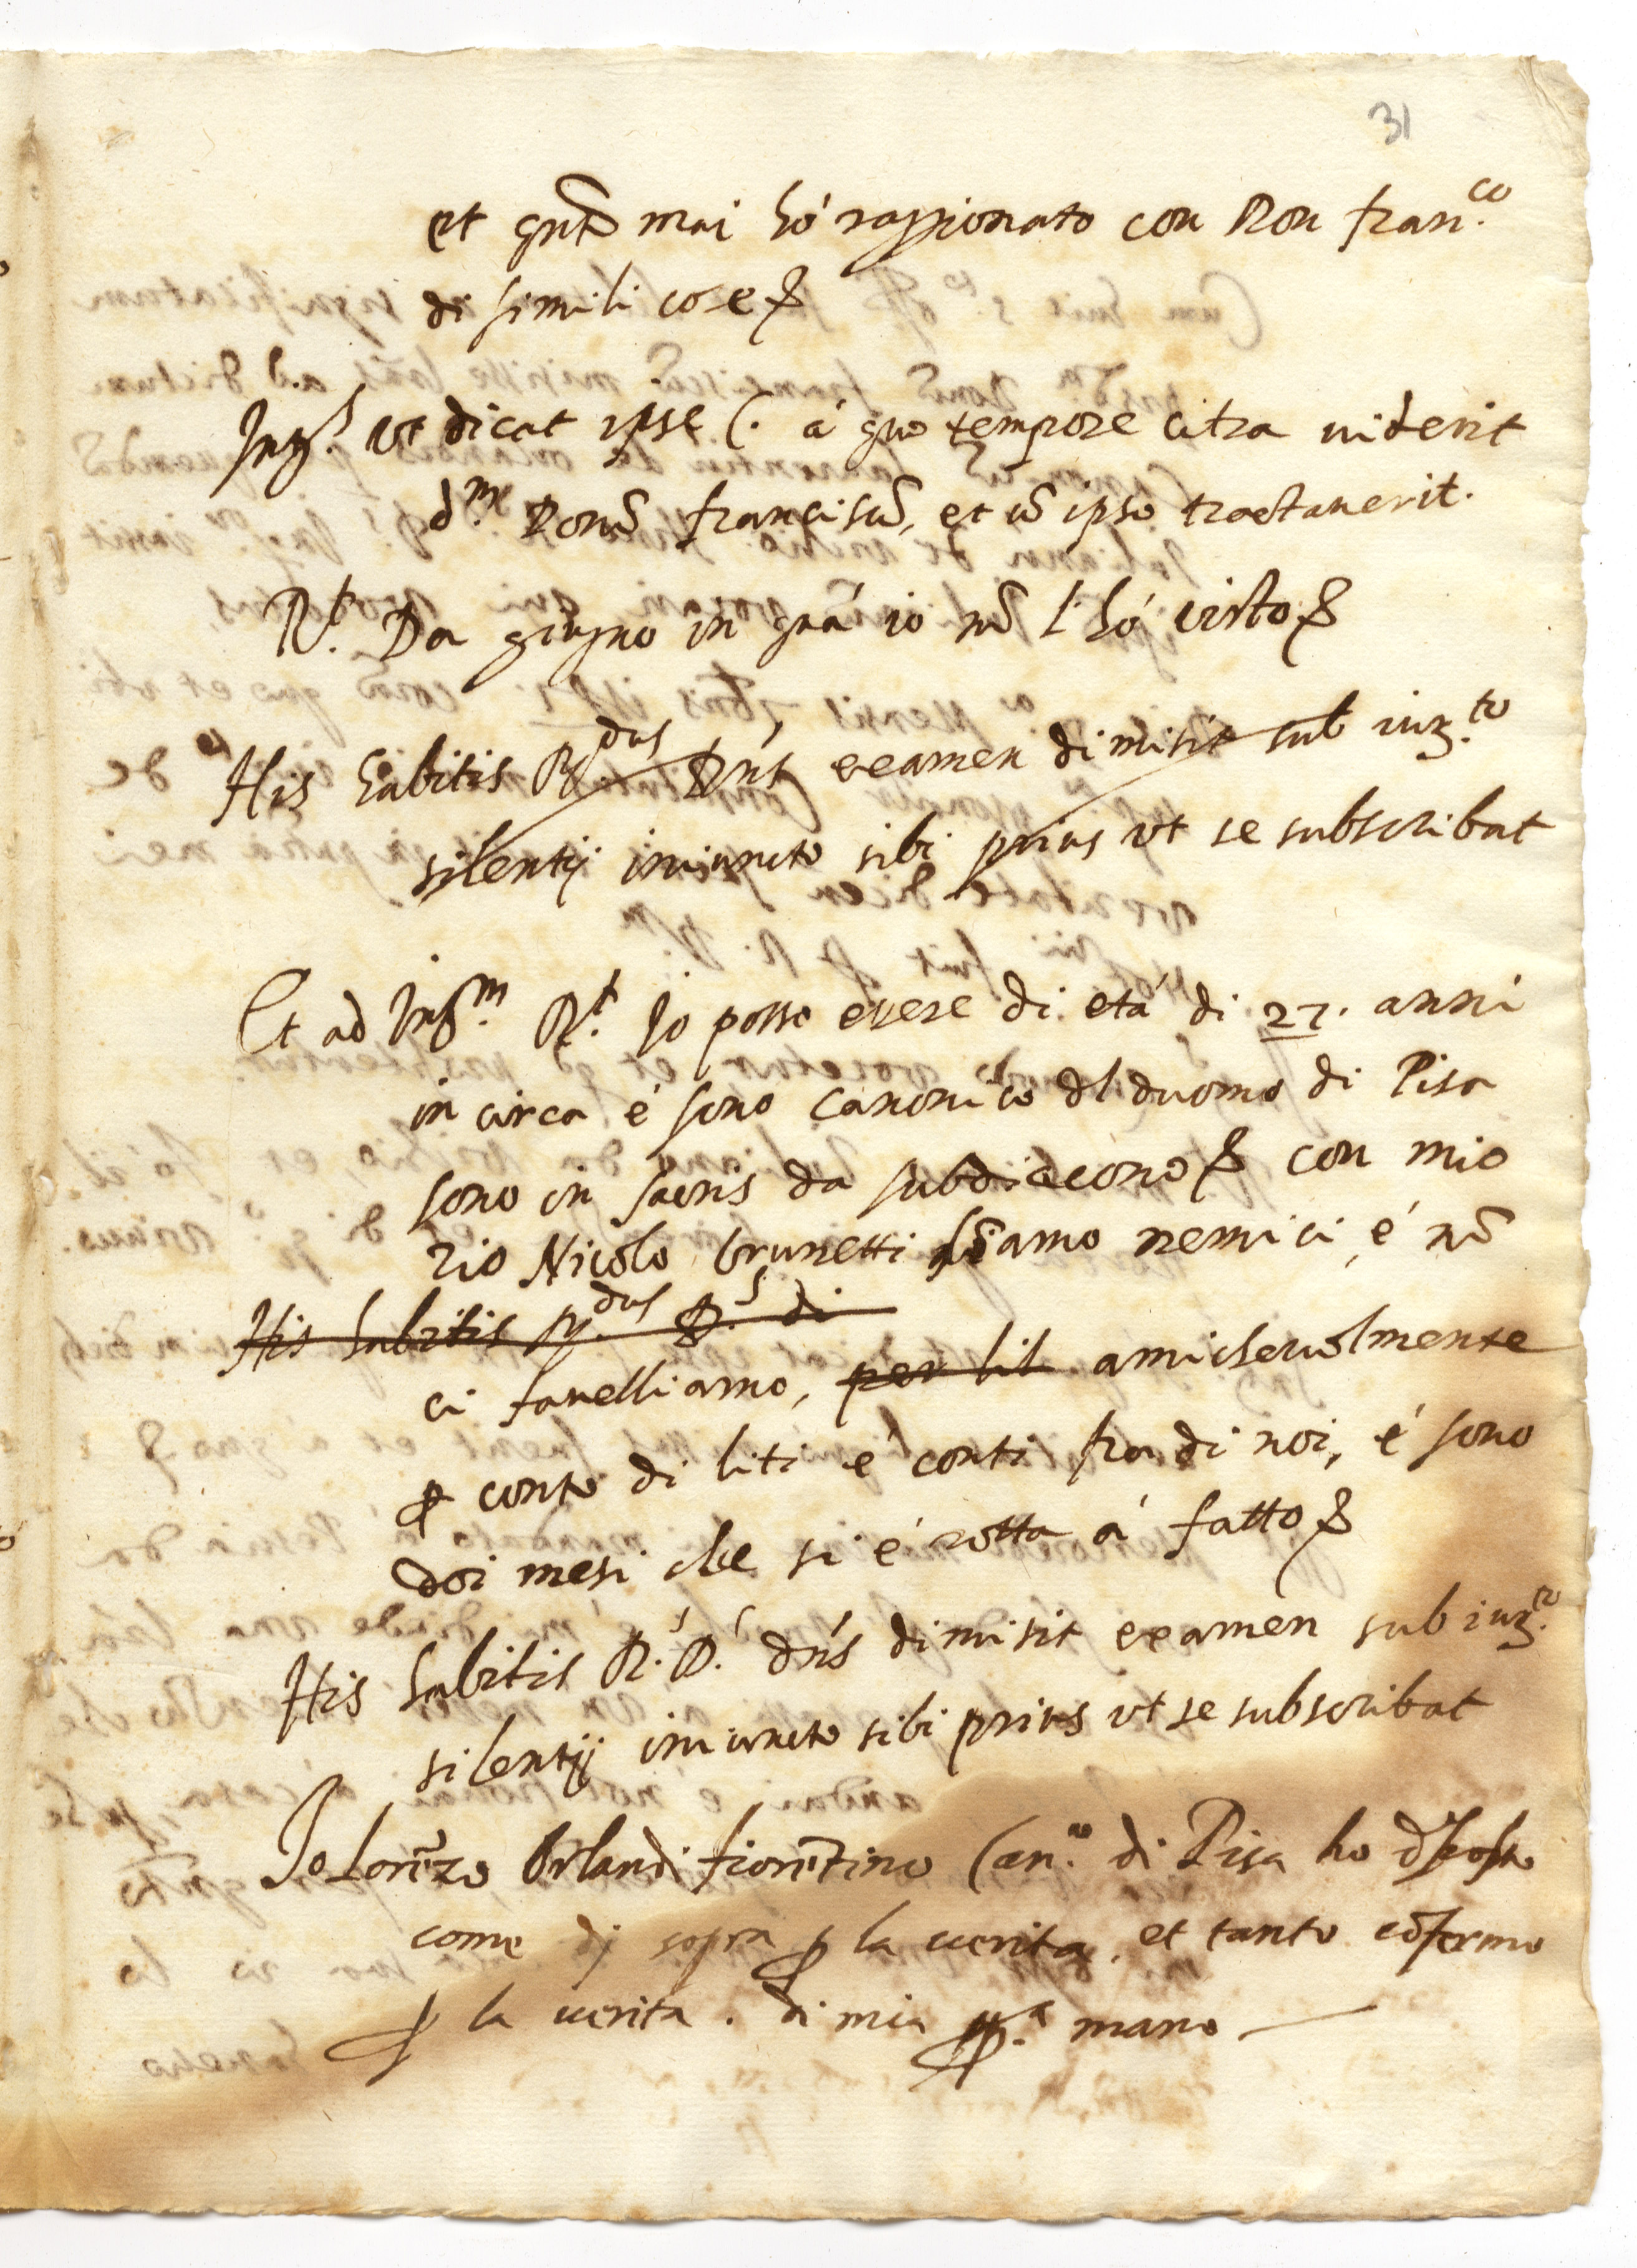 31
et mai hó raggionato con Don fran.co
di simili cose
Ing.s vt dicat ipse C. á quo tempore citra uiderit
d.m Donũ franciscũ, et cũ ipso tractauerit.
R.t Da giugno in quá io nõ l'hó visto
His habitis R.dus Dńs examen dimisit sub iur.to
silentij iniuncto sibi prius vt se subscribat
Et ad Ing.m R.t Io posso essere di etá di 27. anni
in circa é sono Canonico dl duomo di Pisa
sono in sacris da subdiacono con mio
zio Nicolo brunetti siamo nemici, é nõ
His habitis R.dus D.s di
ci fauelliamo, per lit amicheuolmente
p conto di liti é conti fra di noi, é sono
doi mesi che si é rotta á fatto
His habitis R.s D. dńs dimisit examen sub iur.to
silentij iniuncto sibi prius vt se subscribat
Io Lorẽzo Orlandi fiorẽtino Can.co di Pisa ho dẽposto
come di sopra p la uerita, et tanto cõfermo
p la uerita. di mia pp.a mano